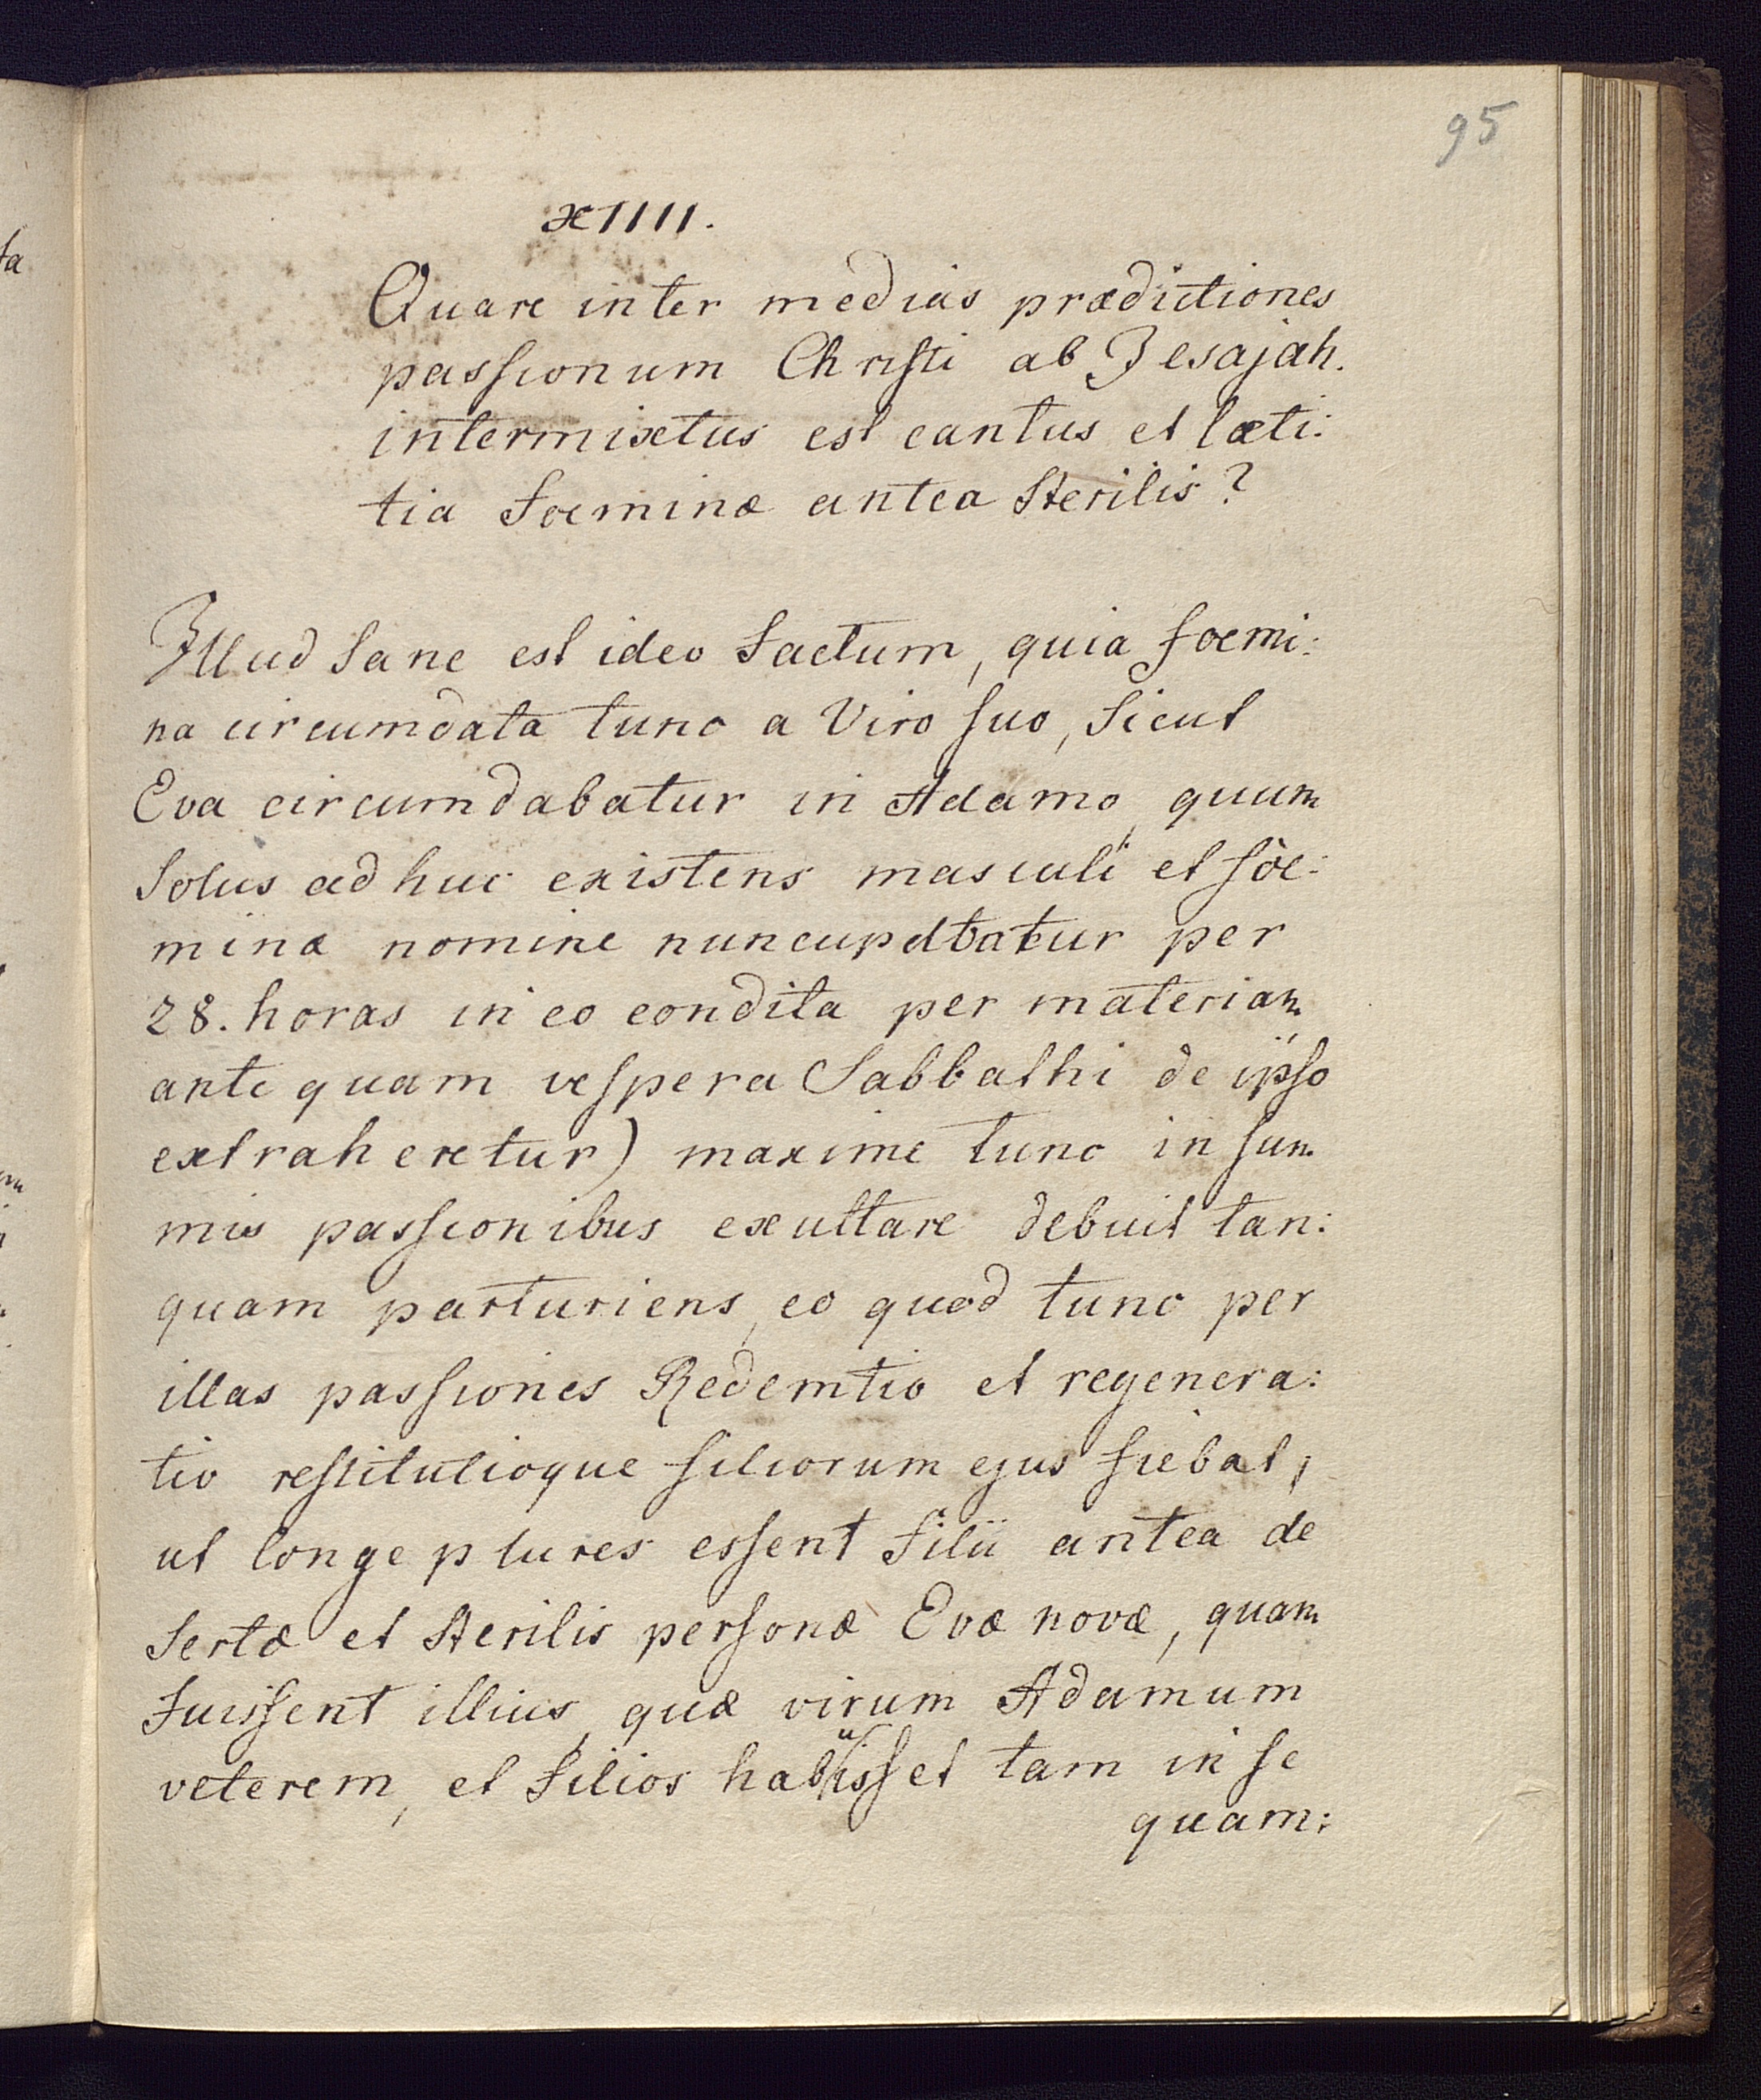 95
XIIII.
Quare inter medias prædictiones
passionum Christi ab Jesajah.
intermixtus est cantus et læti:
tia Foeminæ antea Sterilis?
Illud Sane est ideo Factum, quia foemi:
na circumdata tunc a Viro suo, Sicut
Eva circumdabatur in Adamo, quum
Solus ad huc existens masculi et foe:
minæ nomine nuncupabatur per
28. horas in eo condita per materiam
ante quam vespera Sabbathi de ipso
extraheretur) maxime tunc in sum
mis passionibus exultare debuit tan:
quam parturiens, eo quod tunc per
illas passiones Redemtio et regenera:
tio restitutioque filiorum ejus fiebat,
ut longe plures essent Filii antea de
Sertæ et Sterilis personæ Evæ novæ, quam
Fuissent illius, quæ virum Adamum
veterem, et Filios habuisset tam in se
quam: